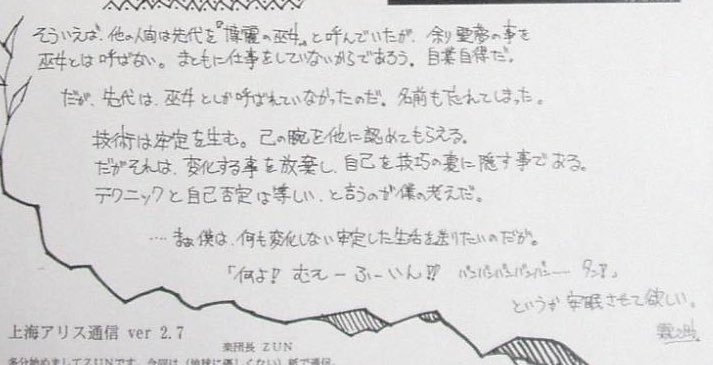 そういえば、他の人間は先代を『博麗の巫女』と呼んでいたが、余り霊夢の事を
巫女とは呼ばない。まともに仕事をしていないからであろう。自業自得だ。
だが、先代は、巫女としか呼ばれていなかったのだ。名前も忘れてしまった。
技術は安定を生む。己の腕を他に認めてもらえる。
だがそれは、変化する事を放棄し、自己を技巧の裏に隠す事である。
テクニックと自己否定は等しい、と言うのが僕の考えだ。
‥‥まぁ僕は、何も変化しない安定した生活を送りたいのだが。
「何よ!! むえーふーいん!! バンバンバンバンバンー タンマ」
というか 安眠させて欲しい。
霖之助
上海アリス通信 ver 2.7
楽団長 ZUN
多分始めましてZUNです。今回は(地球に優しくない)紙で通信。